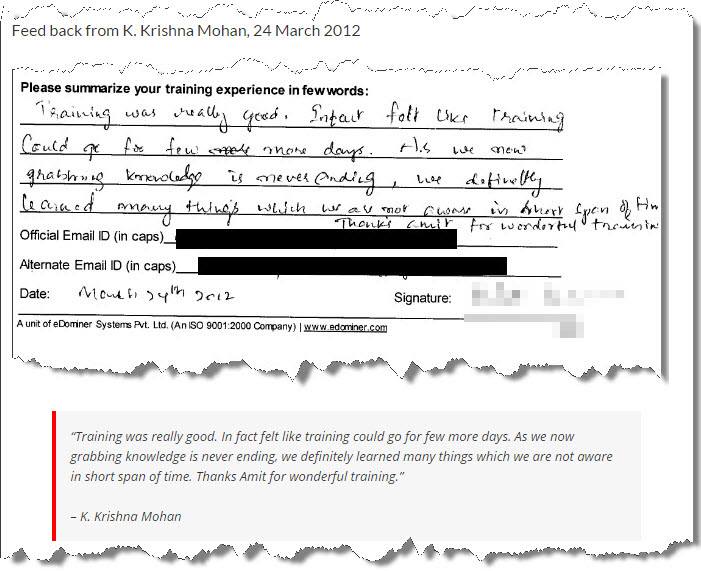 Feed back from K. Krishna Mohan, 24 March 2012
Please summarize your training experience in few words:
Training was really good. Infact felt like Training
Could go for few more days. As we now
grabbing knowledge is never ending, we definetly
learned many things which we are not aware in short span of tim
Thanks Amit for wonderful trainin
Official Email ID (in caps)
Alternate Email ID (in caps)
Date: March 24th 2012
Signature:
A unit of eDominer Systems Pvt. Ltd. (An ISO 9001:2000 Company) | www.edominer.com
“Training was really good. In fact felt like training could go for few more days. As we now
grabbing knowledge is never ending, we definitely learned many things which we are not aware
in short span of time. Thanks Amit for wonderful training.”
– K. Krishna Mohan